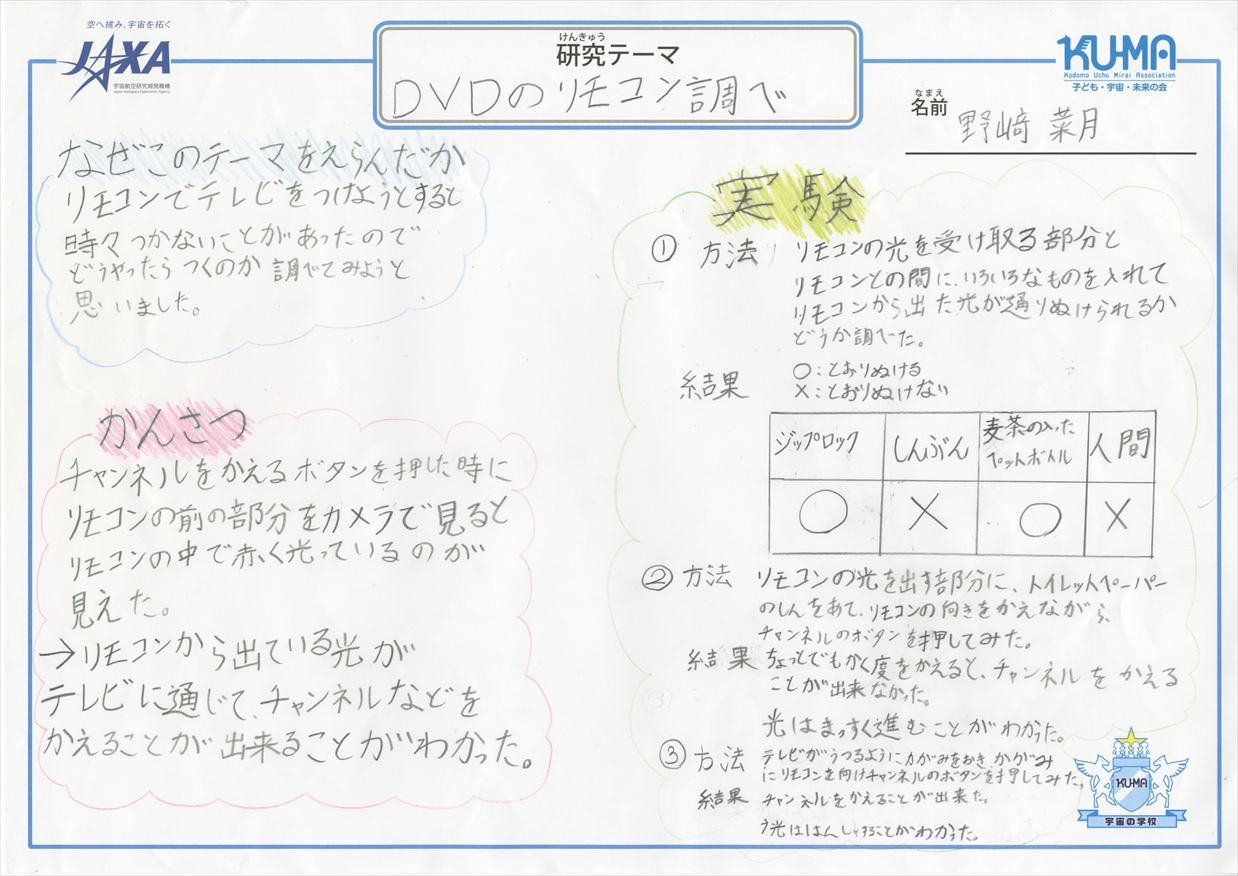 空へ挑み、宇宙を拓く
JAXA
宇宙航空研究開発機構
Japan Aerospace Exploration Agency
けんきゅう
研究テーマ
DVDのリモコン調べ
KU-MA
Kodomo Uchu Mirai Association
子ども・宇宙・未来の会
なまえ
名前
野﨑 菜月
なぜこのテーマをえらんだか
リモコンでテレビをつけようとすると
時々つかないことがあったので
どうやったらつくのか調べてみようと
思いました。
かんさつ
チャンネルをかえるボタンを押した時に
リモコンの前の部分をカメラで見ると
リモコンの中で赤く光っているのが
見えた。
→リモコンから出ている光が
テレビに通じて、チャンネルなどを
かえることが出来ることがわかった。
実験
① 方法 リモコンの光を受け取る部分と
リモコンとの間に、いろいろなものを入れて
リモコンから出た光が通りぬけられるか
どうか調べた。
結果 ○:とおりぬける
×:とおりぬけない
ジップロック しんぶん 麦茶の入った 人間
ペットボトル
○ × ○ ×
② 方法 リモコンの光を出す部分に、トイレットペーパー
のしんをあて、リモコンの向きをかえながら、
チャンネルのボタンを押してみた。
結果 ちょっとでもかく度をかえると、チャンネルをかえる
ことが出来なかった。
光はまっすぐ進むことがわかった。
③ 方法 テレビがうつるようにかがみをおき、かがみ
にリモコンを向けチャンネルのボタンを押してみた。
結果 チャンネルをかえることが出来た。
光ははんしゃすることがわかった。
KU-MA
宇宙の学校